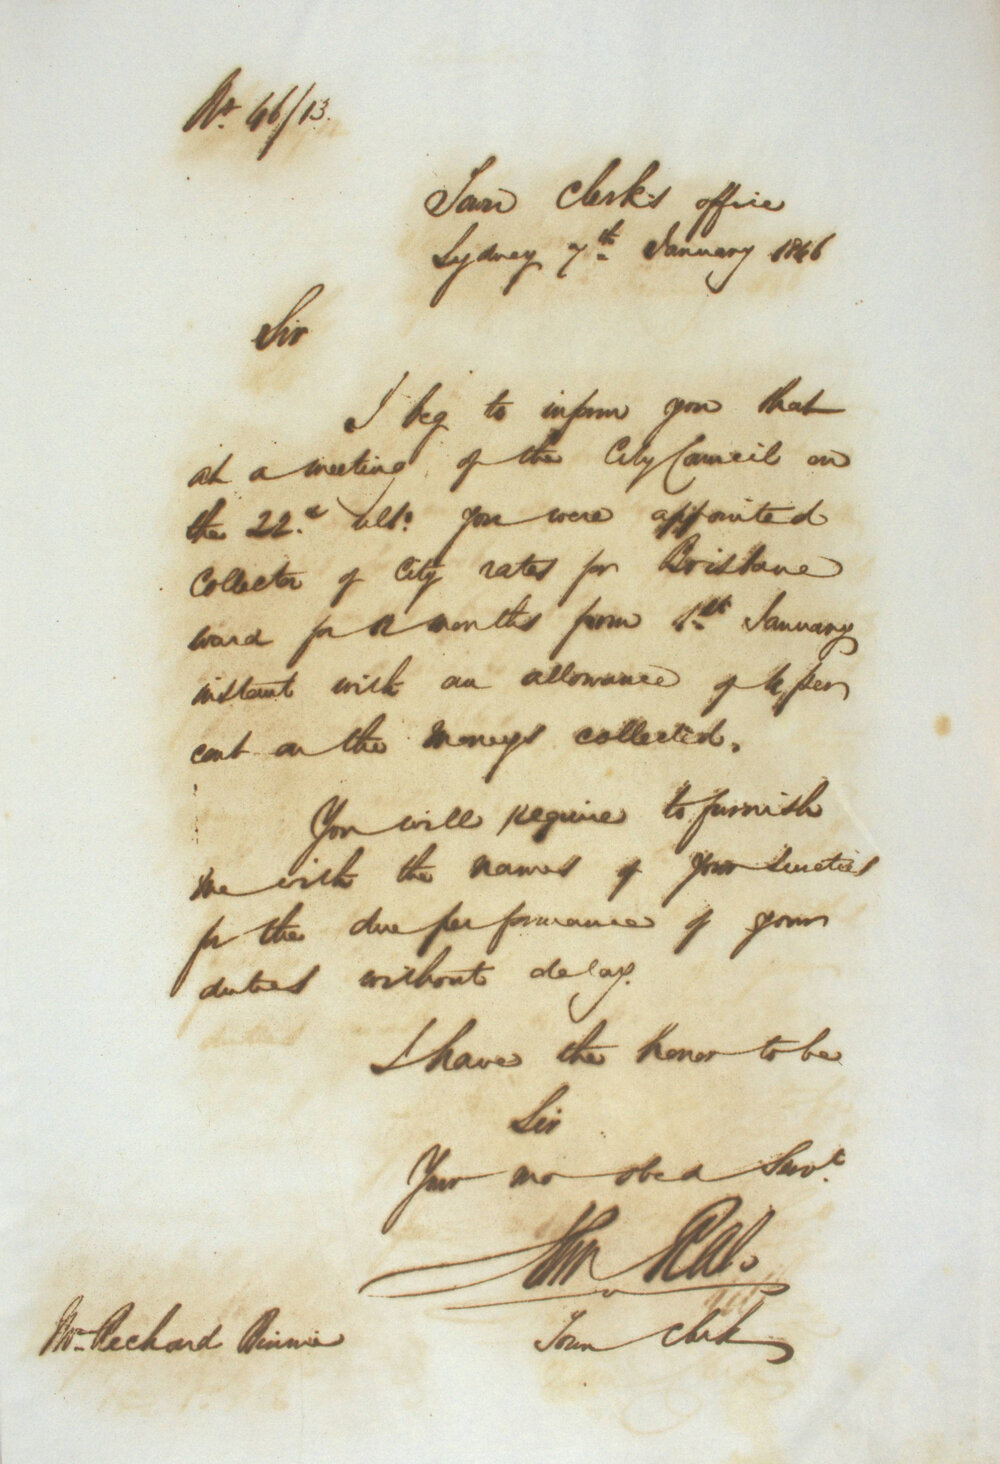 No. 46/13.
Town Clerk's office
Sydney 7th January 1846
Sir
I beg to inform you that
at a meeting of the City Council on
the 22.d ulto. you were appointed
Collector of City rates for Brisbane
ward for 12 months from 1st January
instant with an allowance of 4 per
cent on the moneys collected.
You will require to furnish
me with the names of your sureties
for the due performance of your
duties without delay.
I have the honor to be
Sir
Your mo obed Servt.
John
Town Clerk
Mr. Richard Binnie